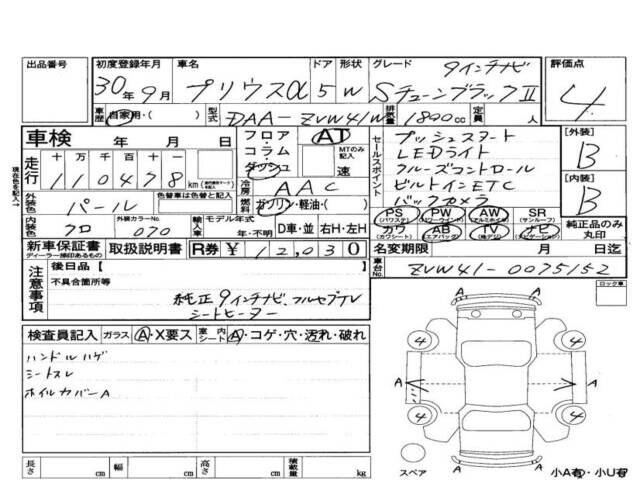 出品番号 初度登録年月 車名 ドア 形状 グレード 評価点
30年9月 プリウスα 5 W 9インチナビ
SチューンブラックⅡ 4
車歴 自家用・( ) 型式 DAA-ZVW41W 排気量 1800cc 定員 人
車検 年 月 日
フロア・コラム ダッシュ AT MTのみ記入 速
セールスポイント
プッシュスタート
LEDライト
クルーズコントロール
ビルトインETC
バックカメラ
[外装] B
[内装] B
走行 十 万 千 百 十 一
110478 km
冷房 AAC
燃料 ガソリン・軽油・( )
外装色 パール 色替車は色替前の色
内装色 クロ 外装カラーNo. 070
輸入車 モデル年式 年・不明 D車・並 右H・左H
PS (パワステ) PW (パワーウインド) AW (アルミホイル) SR (サンルーフ)
カワ (カワシート) AB (エアバッグ) TV (地デジ) ナビ (ナビゲーション)
純正品のみ丸印
新車保証書 ディーラー捺印あるもの 取扱説明書 R券 ¥ 12,030
名変期限 月 日迄
車台No. ZVW41-0075152
現在色を記入→
注意事項 後日品[ ]
不具合箇所等
純正9インチナビ、フルセグTV
シートヒーター
ロック車
検査員記入 ガラス A・X要ス 室内シート A・コゲ・穴・汚れ・破れ
ハンドルハゲ
シートスレ
ホイルカバーA
4 4
A A A
4 4
A
スペア
小A有・小U有
長さ cm 幅 cm 高さ cm 積載量 kg